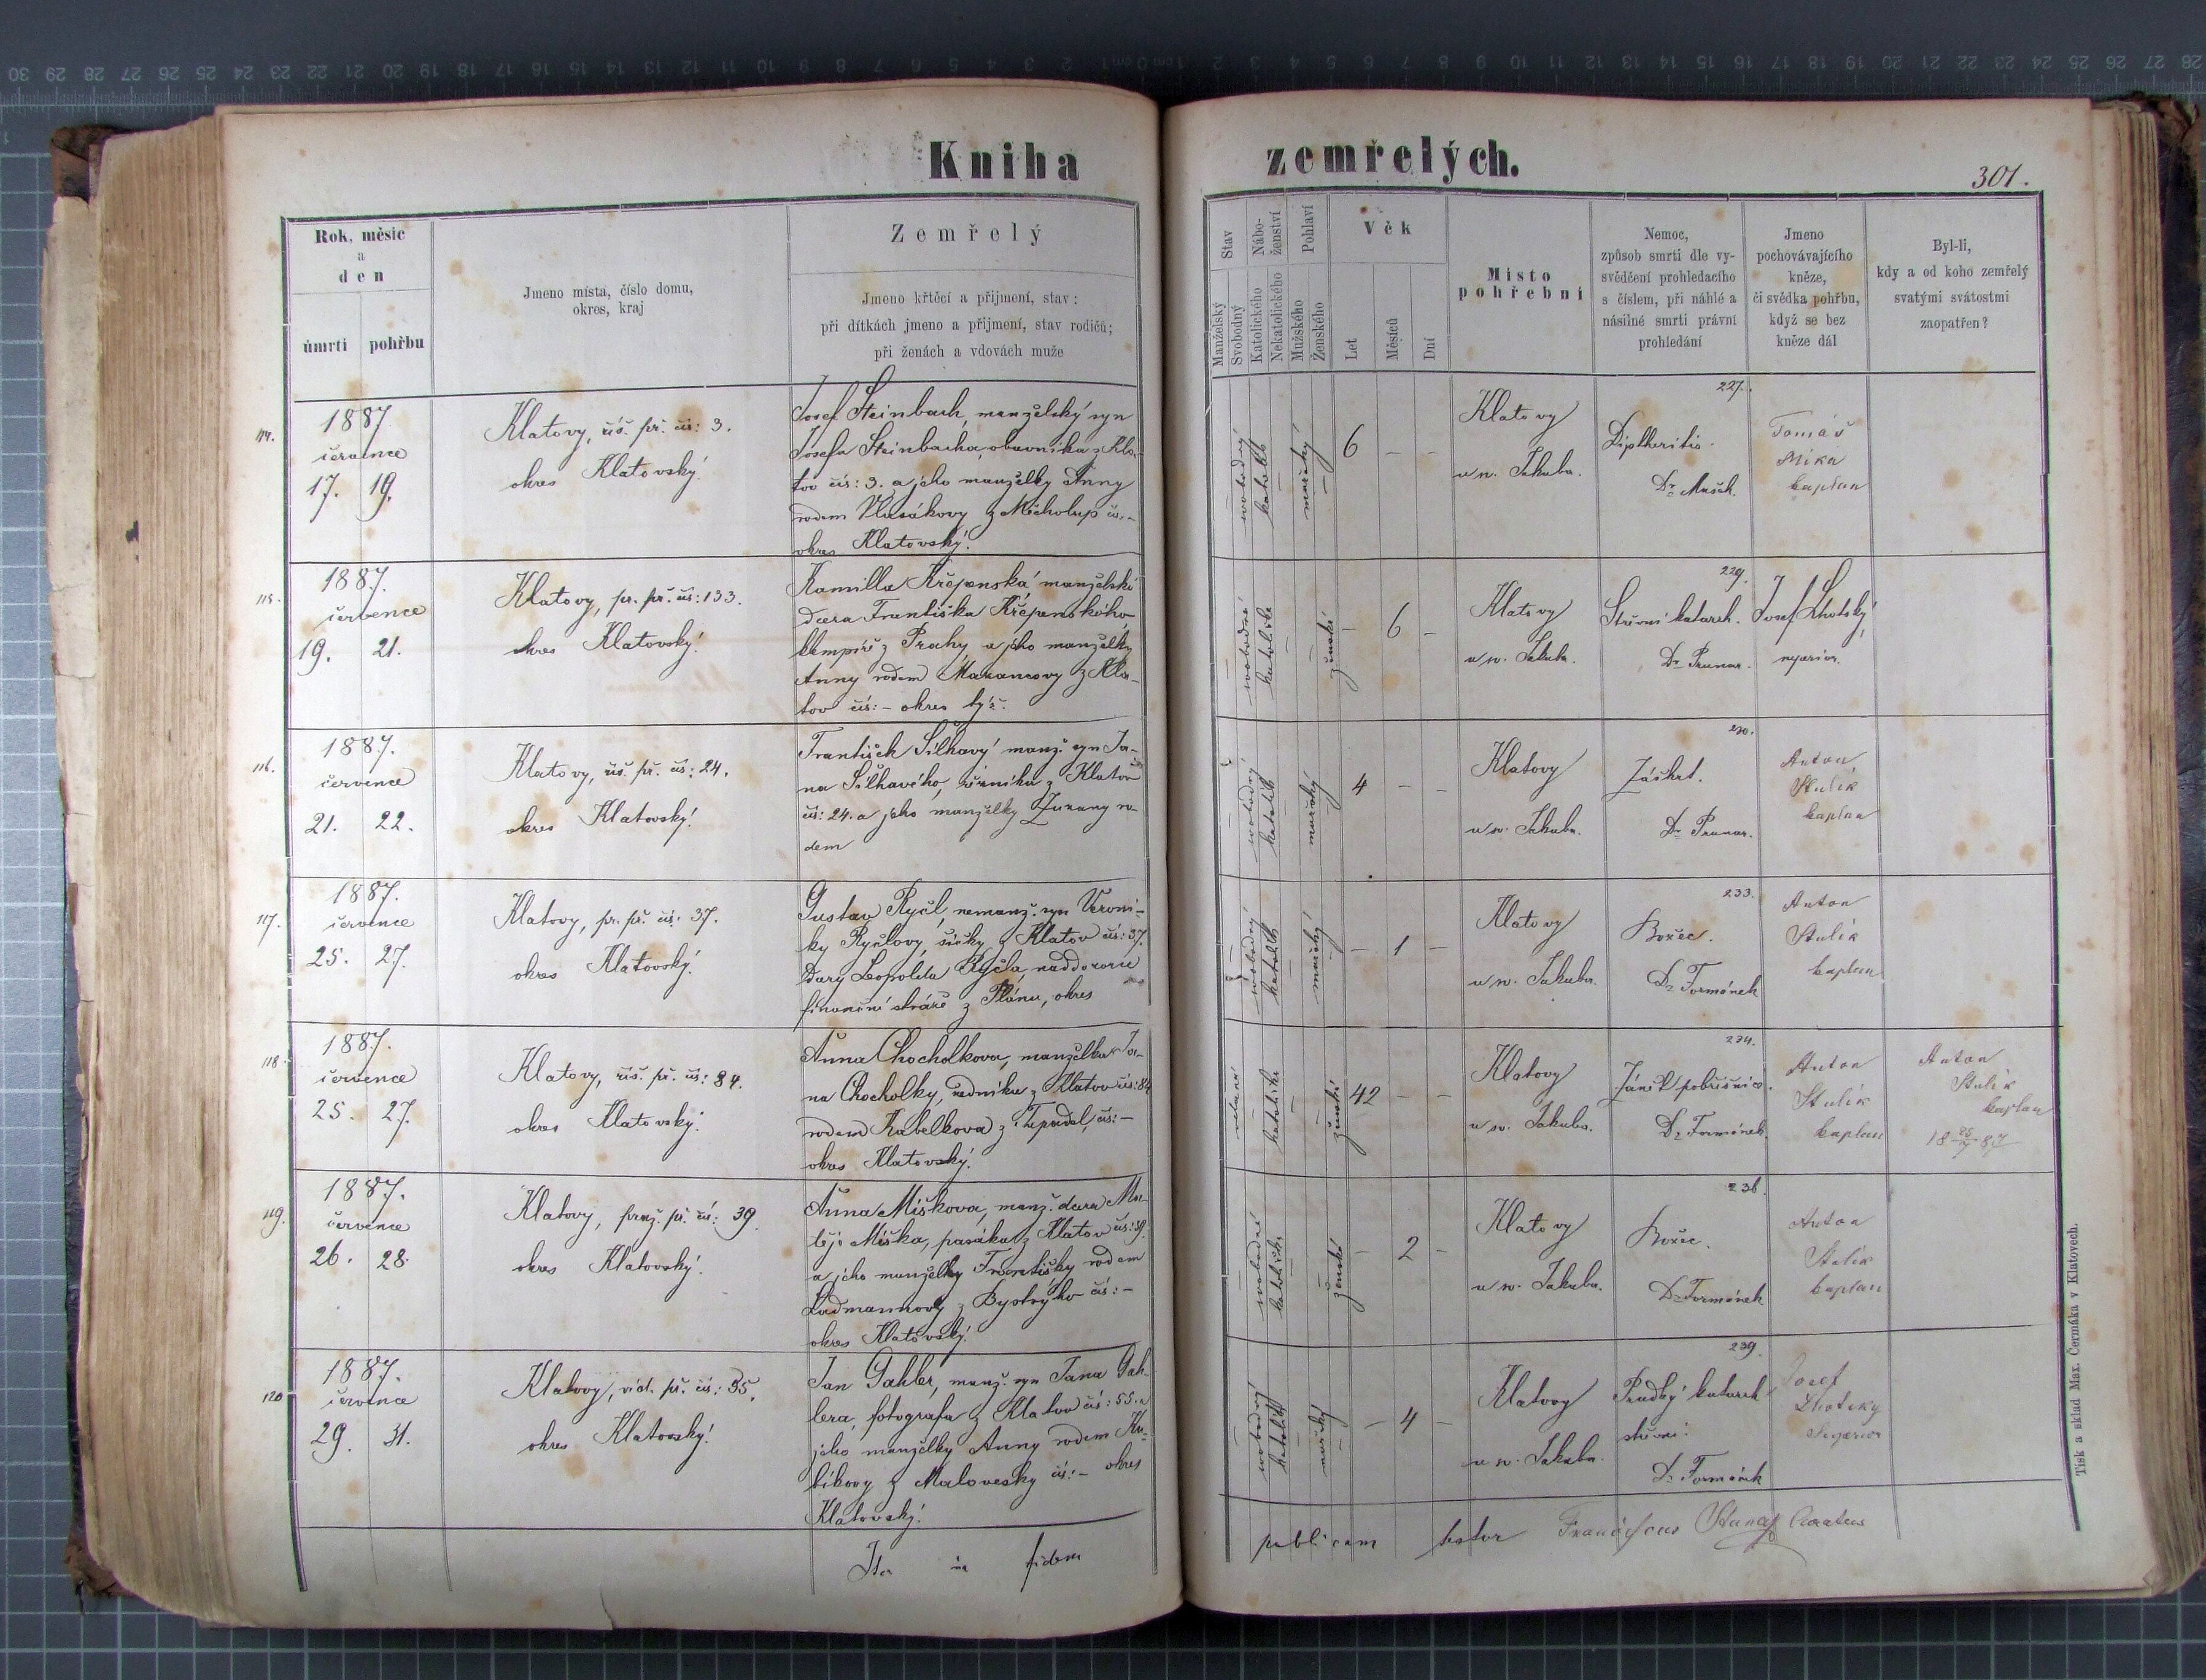 Kniha zemřelých.
301.
Rok, měsíc
a
den
úmrtí pohřbu
Jmeno místa, číslo domu,
okres, kraj
Zemřelý
Jmeno křtěcí a přijmení, stav;
při dítkách jmeno a přijmení, stav rodičů;
při ženách a vdovách muže
Stav
Manželský
Svobodný
Nábo-
ženství
Katolického
Nekatolického
Pohlaví
Mužského
Ženského
Věk
Let
Měsíců
Dní
Místo
pohřební
Nemoc,
způsob smrti dle vy-
svědčení prohledacího
s číslem, při náhlé a
násilné smrti právní
prohledání
Jmeno
pochovávajícího
kněze,
či svědka pohřbu,
když se bez
kněze dál
Byl-li,
kdy a od koho zemřelý
svatými svátostmi
zaopatřen?
114.
1887
července
17. 19.
Klatovy, říš. př. čís: 3.
okres Klatovský.
Josef Steinbach, manželský syn
Josefa Steinbacha, obuvníka z Kla-
tov čís: 3. a jeho manželky Anny
rodem Vlasákovy z Měcholup čís.-
okres Klatovský.
svobodný
katolík
mužský
6 - -
Klatovy
u sv. Jakuba.
227.
Diphtheritis.
Dr. Mašek.
Tomáš
Mika
kaplan
115.
1887.
července
19. 21.
Klatovy, pr. př. čís: 133.
okres Klatovský.
Kamilla Křepenská manželská
dcera Františka Křepenského
klempíře z Prahy a jeho manželky
Anny rodem z Kla-
tov čís: - okres týž.
svobodná
katolička
ženské
- 6 -
Klatovy
u sv. Jakuba.
229.
Střevní katarrh.
Dr. Prunar.
Josef Lhotský,
senior.
116.
1887.
července
21. 22.
Klatovy, říš. př. čís: 24.
okres Klatovský.
František Šilhavý manž. syn Ja-
na Šilhavého, řezníka z Klatov
čís: 24. a jeho manželky Zuzany ro-
dem
svobodný
katolík
mužský
4 - -
Klatovy
u sv. Jakuba.
230.
Záškrt.
Dr. Prunar.
Anton
Stulík
kaplan
117.
1887.
července
25. 27.
Klatovy, pr. př. čís: 37.
okres Klatovský.
Gustav Ryčl, nemanž. syn Veroni-
ky Ryčlovy, šičky z Klatov čís: 37.
dcery Leopolda Ryčla, naddozorce
finanční stráže z Plánu, okres
svobodný
katolík
mužský
- 1 -
Klatovy
u sv. Jakuba.
233.
Božec.
Dr. Formánek
Anton
Stulík
kaplan
118.
1887.
července
25. 27.
Klatovy, říš. př. čís: 84.
okres Klatovský.
Anna Chocholkova, manželka Ja-
na Chocholky, z Klatov čís: 84
rodem Kabelkova z Tupadel, čís: -
okres Klatovský.
katolička
ženské
42 - -
Klatovy
u sv. Jakuba.
234.
Zánět pobřišnice.
Dr. Formánek.
Anton
Stulík
kaplan
Anton
Stulík
kaplan
18 25/7 87
119.
1887.
července
26. 28.
Klatovy, praž. př. čís: 39.
okres Klatovský.
Anna Míškova, manž. dcera Ma-
těje Míška, pasáka z Klatov čís: 39.
a jeho manželky Františky rodem
Ladmannovy z Bystrýho čís: -
okres Klatovský.
svobodná
katolička
ženské
- 2 -
Klatovy
u sv. Jakuba.
236.
Božec.
Dr. Formánek
Anton
Stulík
kaplan
120
1887.
července
29. 31.
Klatovy, víd. př. čís: 55.
okres Klatovský.
Jan Gahler, manž. syn Jana Gah-
lera, fotografa z Klatov čís: 55. a
jeho manželky Anny rodem Ku-
bíkovy z Malovesky čís: - okres
Klatovský.
svobodný
katolík
mužský
- 4 -
Klatovy
u sv. Jakuba.
239.
Prudký katarrh
střevní.
Dr. Formánek
Josef
Lhotsky
Senior
Ita in fidem publicam testor Franciscus
Tisk a sklad Max. Čermáka v Klatovech.